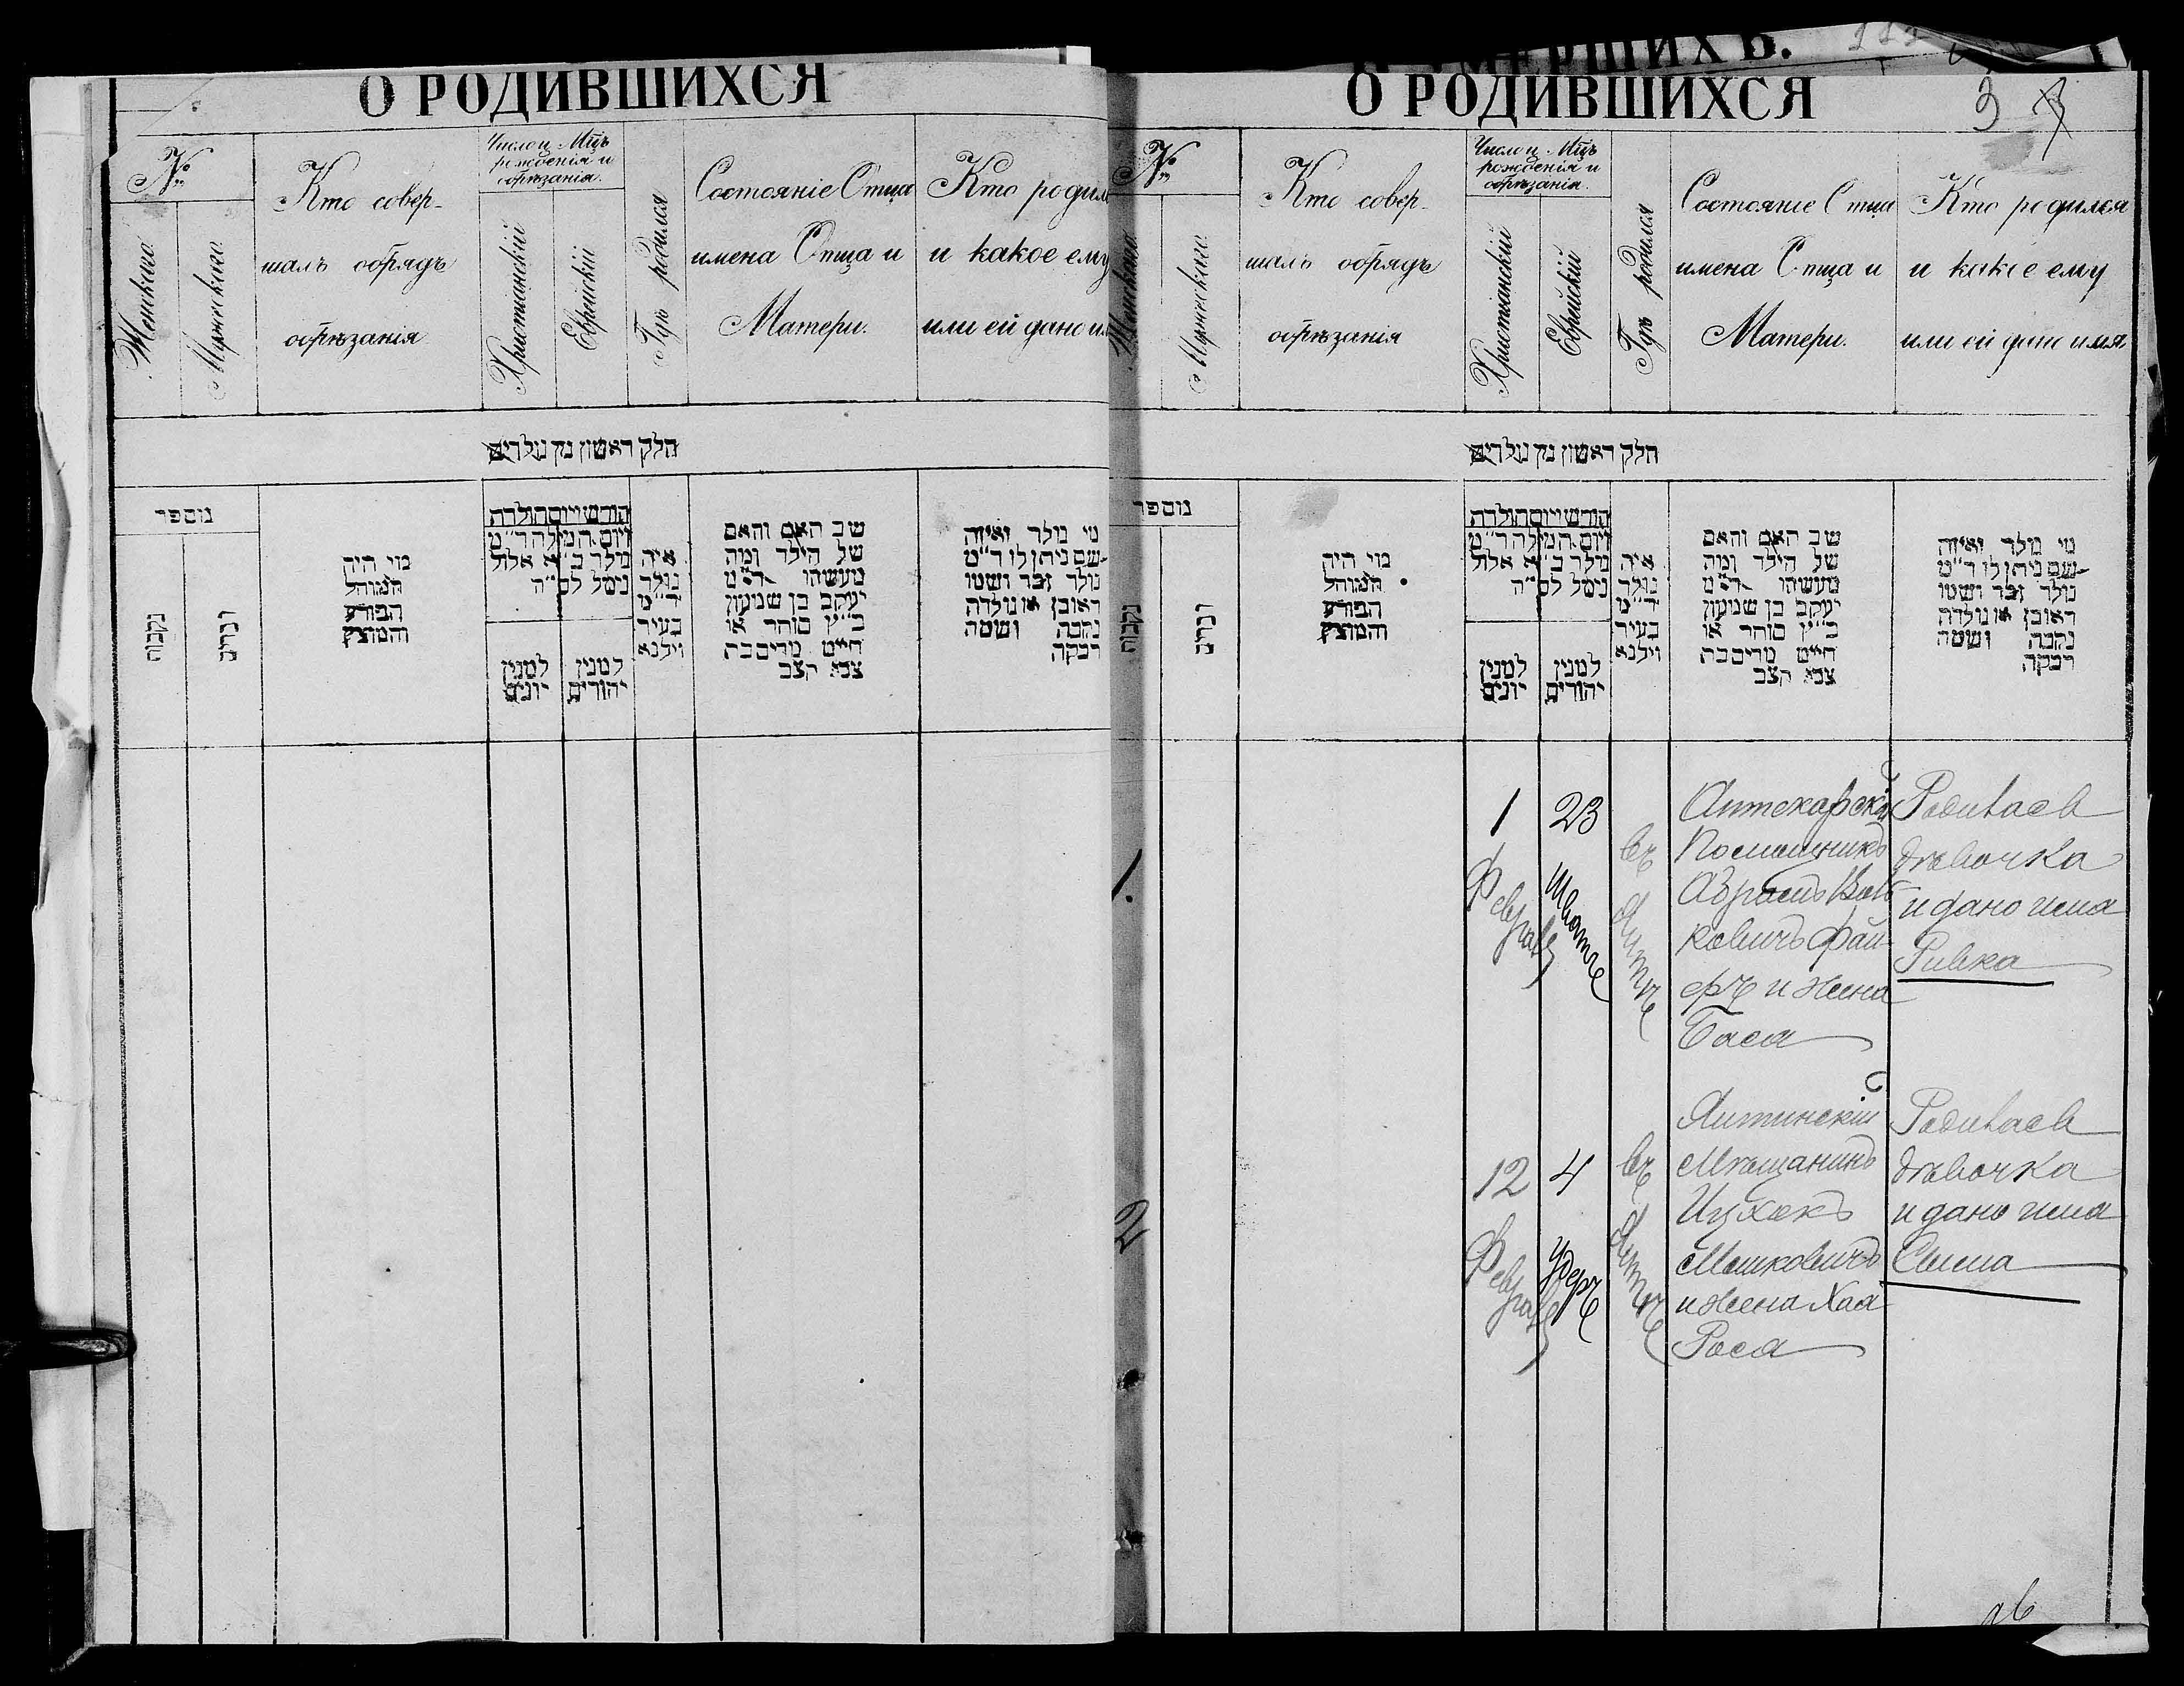 О РОДИВШИХСЯ
№
Женскаго
Мужескаго
Кто совер-
шалъ обрядъ
обрѣзанія
Число и Мцъ
рожденія и
обрѣзанія.
Христіанскій
Еврейскій
Гдѣ родился
Состояніе Отца
имена Отца и
Матери.
Кто родил
и какое ему
или ей дано им
חלק ראשון מן נולדים
נומפר
נקבות
זכרים
מי היה
המוהל
הפורע
והמוצץ
חודש ויום הולדת
ויום המילה ד״מ
נולד ב״א אלול
ניסל לס״ה
למנין
יונים
למנין
יהודים
איה
נולד
ד״מ
בעיר
ווילנא
שב האם והאם
של הילד ומה
מעשהו ד״מ
יעקב בן שמעון
כ״ץ סוחר או
חייט מרים בת
צבא הצב
מי נולד ואיזה
שם ניתן לו ד״מ
נולד זכר ושמו
ראובן או נולדה
נקבה ושמה
רבקה
УМЕРШИХЪ.
О РОДИВШИХСЯ
3
№
Женскаго
Мужескаго
Кто совер-
шалъ обрядъ
обрѣзанія
Число и Мцъ
рожденія и
обрѣзанія.
Христіанскій
Еврейскій
Гдѣ родился
Состояніе Отца
имена Отца и
Матери.
Кто родился
и какое ему
или ей дано имя
חלק ראשון מן נולדים
נומפר
נקבות
זכרים
מי היה
המוהל
הפורע
והמוצץ
חודש ויום הולדת
ויום המילה ד״מ
נולד ב״א אלול
ניסל לס״ה
למנין
יונים
למנין
יהודים
איה
נולד
ד״מ
בעיר
ווילנא
שב האם והאם
של הילד ומה
מעשהו ד״מ
יעקב בן שמעון
כ״ץ סוחר או
חייט מרים בת
צבא הצב
מי נולד ואיזה
שם ניתן לו ד״מ
נולד זכר ושמו
ראובן או נולדה
נקבה ושמה
רבקה
1.
1
Февраля
23
Шватъ
въ
Ялтѣ
Аптекарскій
Помощникъ
Абрамъ Воль
ковичъ Фай-
фръ и жена
Баса
Родилась
дѣвочка
и дано имя
Ривка
2
12
Февраля
4
Удеръ
въ
Ялтѣ
Ялтинскій
Мѣщанинъ
Ицхокъ
Мошковичъ
и жена Хая
Роса
Родилась
дѣвочка
и дано имя
Сима